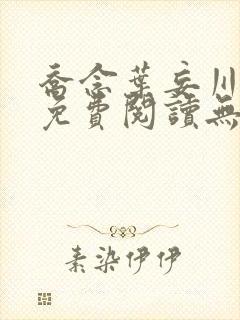 喬念葉妄川
免費閱讀無
素染伊伊